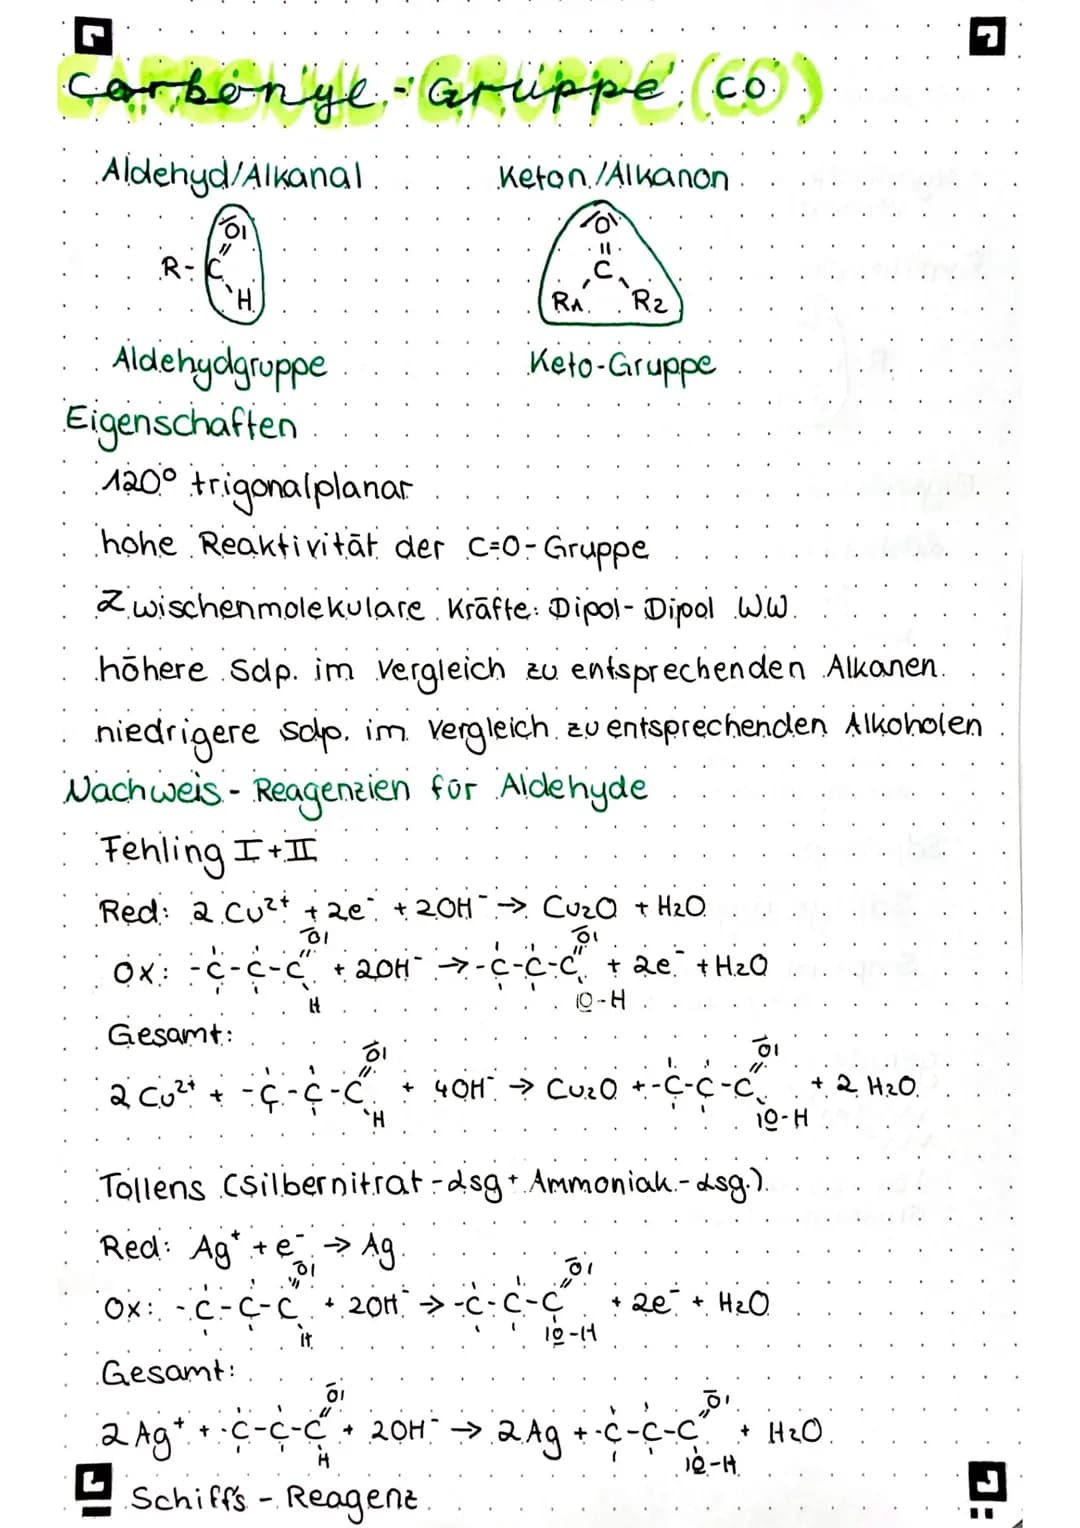 Carbonyl-Gruppe (CO)
Aldehyd/Alkanal Keton/Alkanon
R-C=O H
O=C R1 R2
Aldehydgruppe Keto-Gruppe
Eigenschaften
120° trigonalplanar
hohe Reaktivität der C=O-Gruppe
Zwischenmolekulare Kräfte: Dipol-Dipol WW
höhere Sdp. im Vergleich zu entsprechenden Alkanen
niedrigere Sdp. im Vergleich zu entsprechenden Alkoholen
Nachweis-Reagenzien für Aldehyde
Fehling I+II
Red: 2 Cu²⁺ + 2e⁻ + 2OH⁻ → Cu₂O + H₂O
Ox: -C-C-C=O H + 2OH⁻ → -C-C-C=O O-H + 2e⁻ + H₂O
Gesamt:
2 Cu²⁺ + -C-C-C=O H + 4OH⁻ → Cu₂O + -C-C-C=O O-H + 2 H₂O
Tollens (Silbernitrat-Lsg + Ammoniak-Lsg.)
Red: Ag⁺ + e⁻ → Ag
Ox: -C-C-C=O H + 2OH⁻ → -C-C-C=O O-H + 2e⁻ + H₂O
Gesamt:
2 Ag⁺ + -C-C-C=O H + 2OH⁻ → 2 Ag + -C-C-C=O O-H + H₂O
Schiff's-Reagenz